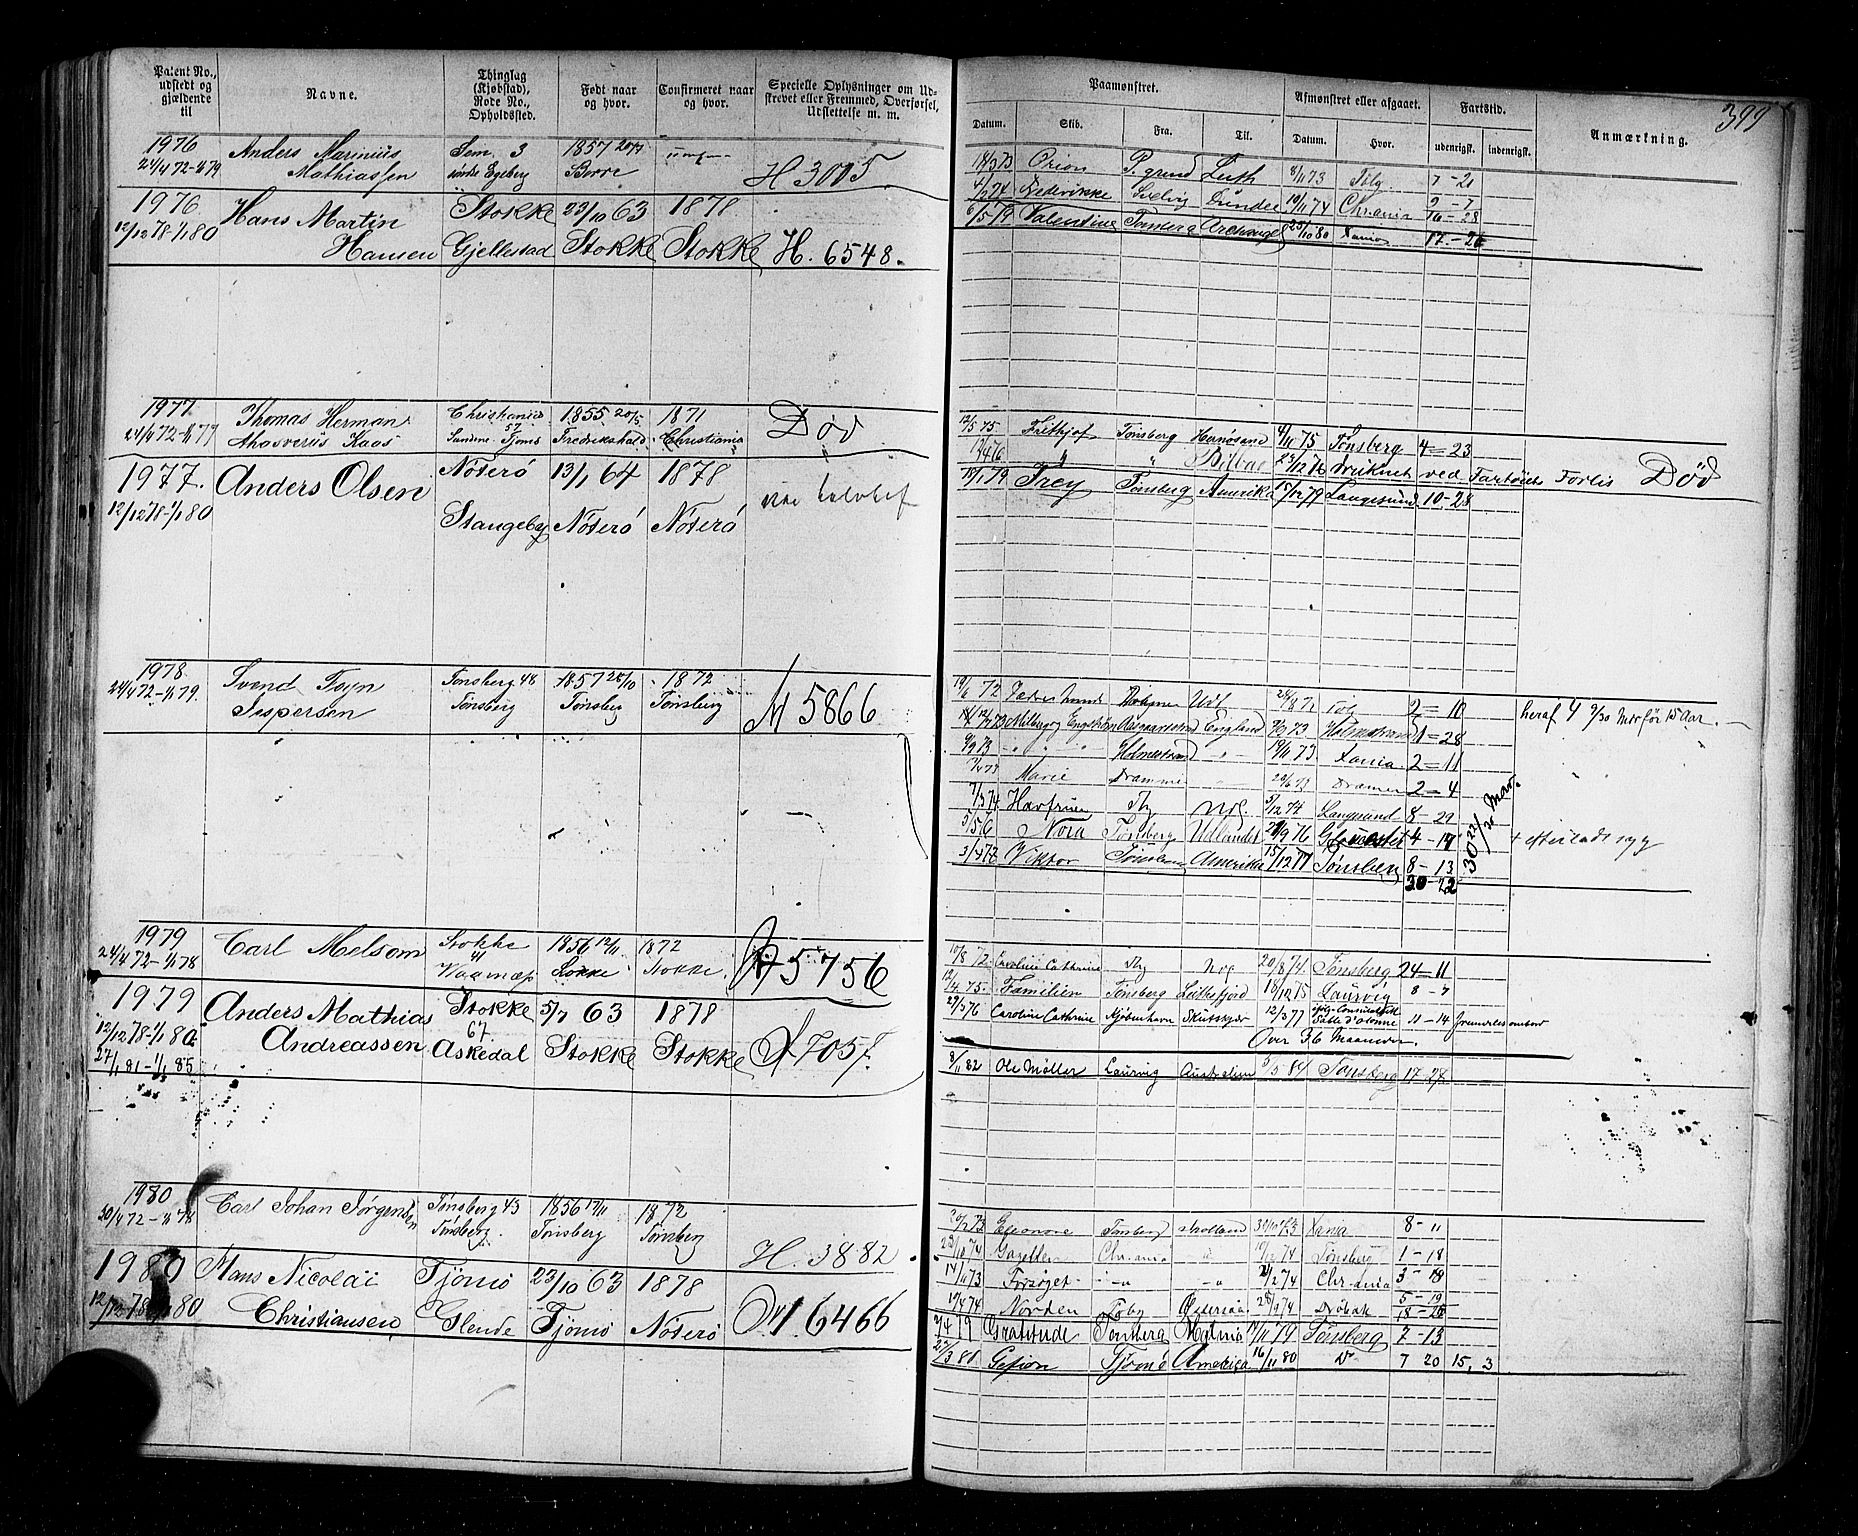 Patent No., udstedt og gjældende til
Navne.
Thinglag (Kjøbstad), Rode No., Opholdssted.
Født naar og hvor.
Confirmeret naar og hvor.
Specielle Oplysninger om Udskrevet eller Fremmed, Overførsel, Udslettelse m. m.
1976 Anders Marinius Sem 3 1857 20/7
24/4 72-1/1 79 Mathiassen Egeberg Borre H 3015
1976 Hans Martin Stokke 23/10 63 1878
12/12 78-1/1 80 Hansen Gjellestad Stokke Stokke H. 6548.
1977 Thomas Herman Christiania 1855 20/5 1871
24/4 72-1/1 77 Ahasverus Kaas Sandene 57 Tjømø Fredrikshald Christiania Død
1977. Anders Olsen Nøterø 13/1 64 1878
12/12 78-1/1 80 Stangeby Nøterø Nøterø
1978 Svend Foyn Tønsberg 48 1857 28/10 1872
24/4 72-1/1 79. Jespersen Tønsberg Tønsberg Tønsberg M 5866
1979 Carl Melsom Stokke 1856 12/11 1872
24/4 72-1/1 78 41 Vaarnæs Stokke Stokke. 5756
1979 Anders Mathias Stokke 5/7 63 1878
12/12 78-1/1 80 Andreassen 67. Askedal Stokke Stokke 7057.
27/1 81-1/1 85
1980 Carl Johan Jørgensen Tønsberg 43 1856 17/11 1872
30/4 72-1/1 78 Tønsberg Tønsberg Tønsberg H. 3882
1980 Hans Nicolai Tjømø 23/10 63 1878
12/12 78 1/1 80 Christiansen Glende Tjømø Nøterø M 6466
399
Paamønstret.
Afmønstret eller afgaaet.
Fartstid.
Anmærkning.
Datum. Skib. Fra. Til. Datum. Hvor. udenrigsk. indenrigsk.
18/3 73 Orion P. grund Leith 8/11 73 Tbg. 7-21
4/2 74 Frederikke Svelvig Dundee 19/11 74 Chr.ania 9-7
16-28
6/5 79 Valentine Tønsberg Archangel 25/10 80 Xania 17-26
12/5 75 Frithjof Tønsberg Hernøsand 4/11 75 Tønsberg 4=23
12/4 76 " " Bilbao 23/12 76 Druknet ved Fartøiets Forlis Død
19/1 79 Frey Tønsberg Amerika 15/12 79 Langesund 10-28
19/6 72 Udl 24/8 7 Tbg 2=10 heraf 4 9/30 Mdr før 15 Aar.
England 73 Holmestrand 1=28
9/9 73 " " " Holmestrand " 19/11 73. Xania 2=11
Marie Drammen Drammen 2-4
7/3 74 Havfruen Tbg Udl. 5/12 74 Langesund 8-29
5/5 76 Nora Tønsberg Udlandet 21/9 76 Gloucester 4-17 + efterladt syg
3/4 78 Viktor Tønsberg Amerika 15/12 77 Tønsberg 8-13
30-22
30 22/30 Mdr.
10/8 72 Caroline Cathrine Tbg Udl 20/8 74 Tønsberg 24=11
12/4 75. Familien Tønsberg Leithsfjord 18/10 75 Laurvig 8-7
29/3 76 Caroline Cathrine Kjøbenhavn Skutskjær 12/3 77 11-14
Over 36 Maaneder.
8/11 82 Ole Møller Laurvig Australien 5/5 84 Tønsberg 17-27
20/2 73 Eleonore Tønsberg Holland 31/10 73 Xania 8-11
23/10 74 Gazellen Chr.ania " 11/12 74 Tønsberg 1-18
14/11 73 Forsøget " " 2/2 74 Chr.ania 3-19
5-19
19/4 74 Norden Tbg Østersøen 28/9 74 Drøbak 18-25
7/4 79 Gratitude Tønsberg Malmø 19/11 79 Tønsberg 7-13
25/3 80 Gefion Tjømø Amerika 16/11 80 D 7 20 15, 3